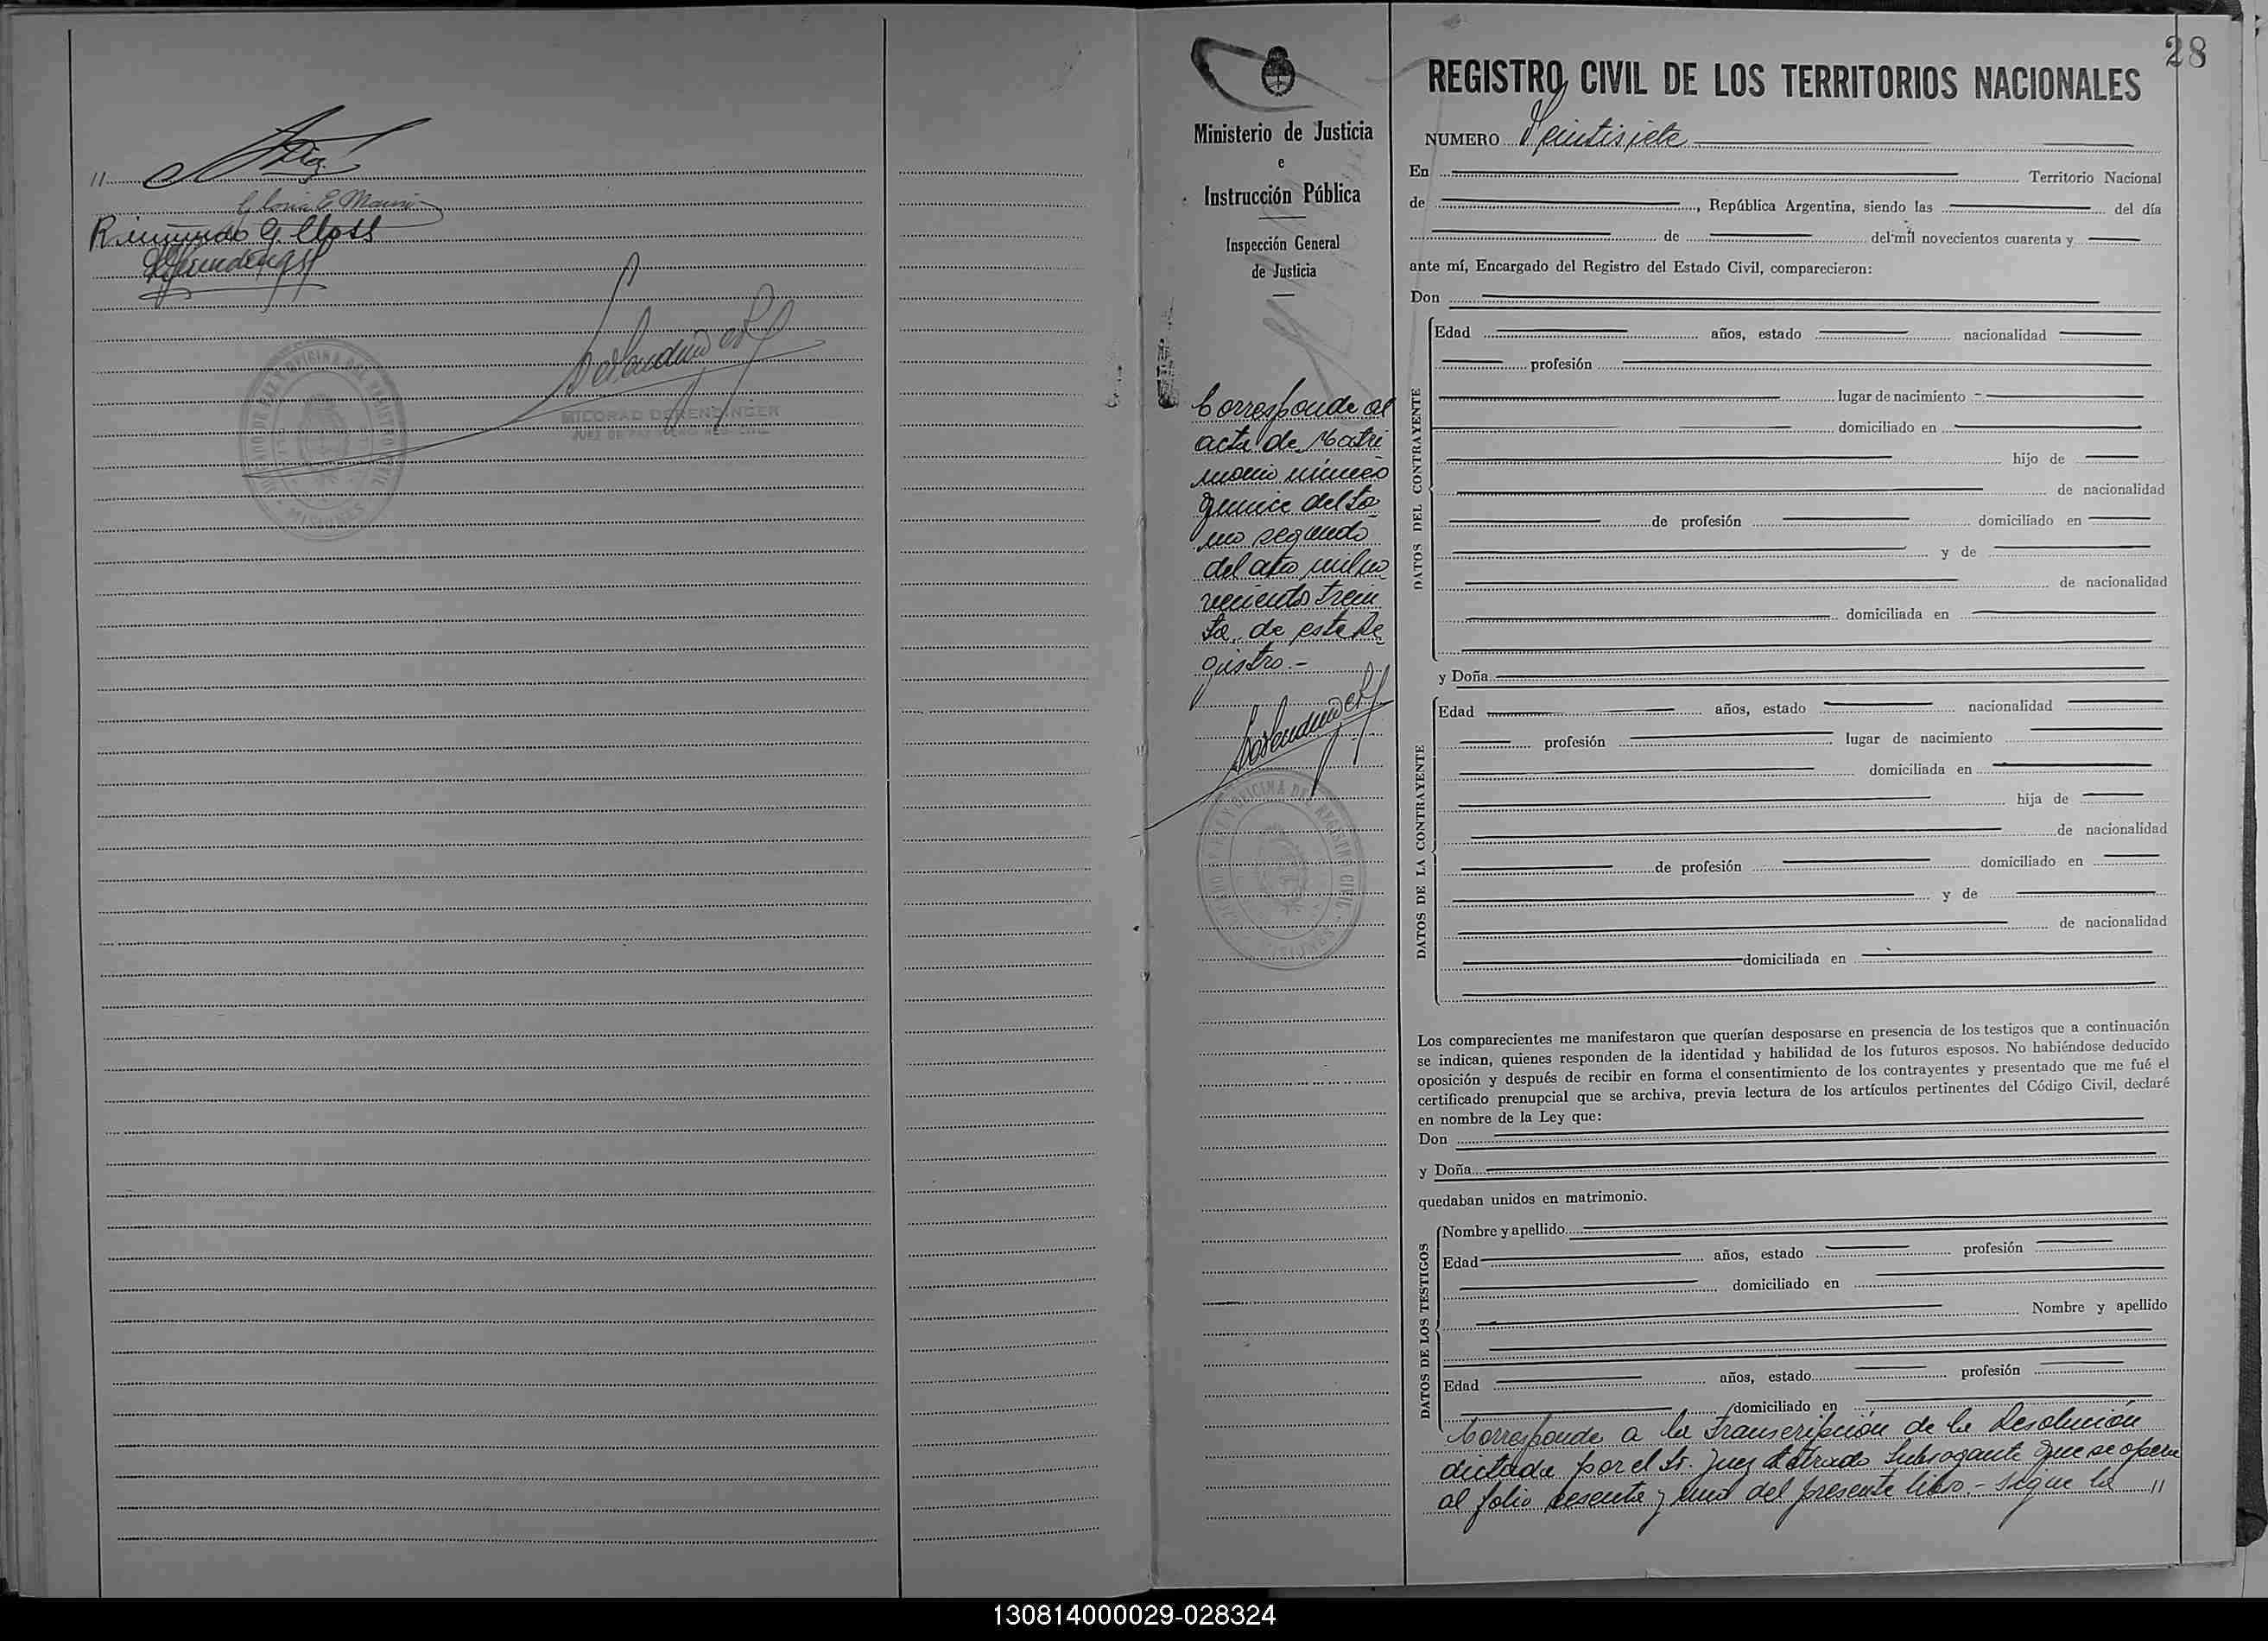 Gloria E.
Raimundo G. Closs
JUZGADO DE PAZ Y OFICINA DEL REGISTRO CIVIL
MISIONES
MILORAD DERENDINGER
JUEZ DE PAZ
28
Ministerio de Justicia
e
Instrucción Pública
Inspección General
de Justicia
Corresponde al
acta de Matri
monio número
quince del to
mo segundo
del año mil no
vecientos trein
ta, de este Re
gistro.-
Y OFICINA DEL REGISTRO CIVIL
MISIONES
REGISTRO CIVIL DE LOS TERRITORIOS NACIONALES
NUMERO Veintisiete
En Territorio Nacional
de , República Argentina, siendo las del día
de del mil novecientos cuarenta y
ante mí, Encargado del Registro del Estado Civil, comparecieron:
Don
DATOS DEL CONTRAYENTE
Edad años, estado nacionalidad
profesión
lugar de nacimiento
domiciliado en
hijo de
de nacionalidad
de profesión domiciliado en
y de
de nacionalidad
domiciliada en
y Doña
DATOS DE LA CONTRAYENTE
Edad años, estado nacionalidad
profesión lugar de nacimiento
domiciliada en
hija de
de nacionalidad
de profesión domiciliado en
y de
de nacionalidad
domiciliada en
Los comparecientes me manifestaron que querían desposarse en presencia de los testigos que a continuación
se indican, quienes responden de la identidad y habilidad de los futuros esposos. No habiéndose deducido
oposición y después de recibir en forma el consentimiento de los contrayentes y presentado que me fué el
certificado prenupcial que se archiva, previa lectura de los artículos pertinentes del Código Civil, declaré
en nombre de la Ley que:
Don
y Doña
quedaban unidos en matrimonio.
DATOS DE LOS TESTIGOS
Nombre y apellido
Edad años, estado profesión
domiciliado en
Nombre y apellido
Edad años, estado profesión
domiciliado en
Corresponde a la transcripción de la Resolución
dictada por el Sr. Juez Letrado Subrogante que se opera
al folio sesenta y uno del presente libro.- Sigue la //
130814000029-028324